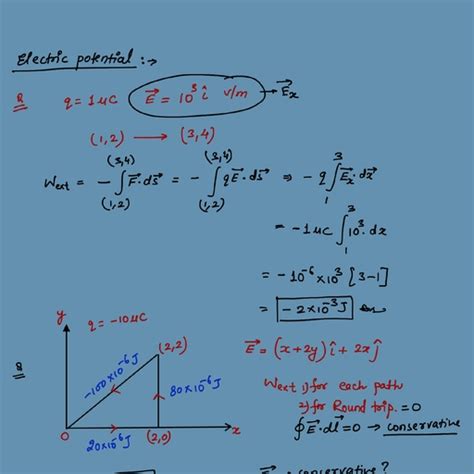 Electric potential :→
Q q = 1μC E⃗ = 10³ î v/m → E⃗x
(1,2) ⟶ (3,4)
Wext = - ∫_(1,2)^(3,4) F⃗·ds⃗ = - ∫_(1,2)^(3,4) qE⃗·ds⃗ ⇒ - q ∫_1^3 E⃗x·dx⃗
= -1μC ∫_1^3 10³·dx
= -10⁻⁶ × 10³ [3-1]
= -2×10⁻³ J Ans
y
q = -10μC
(2,2)
-100×10⁻⁶ J
80×10⁻⁶ J
0
20×10⁻⁶ J
(2,0)
x
E⃗ = (x+2y) î + 2x ĵ
Wext 1) for each path
2) for Round trip. = 0
∮ E⃗·dl⃗ = 0 → conservative
conservative?